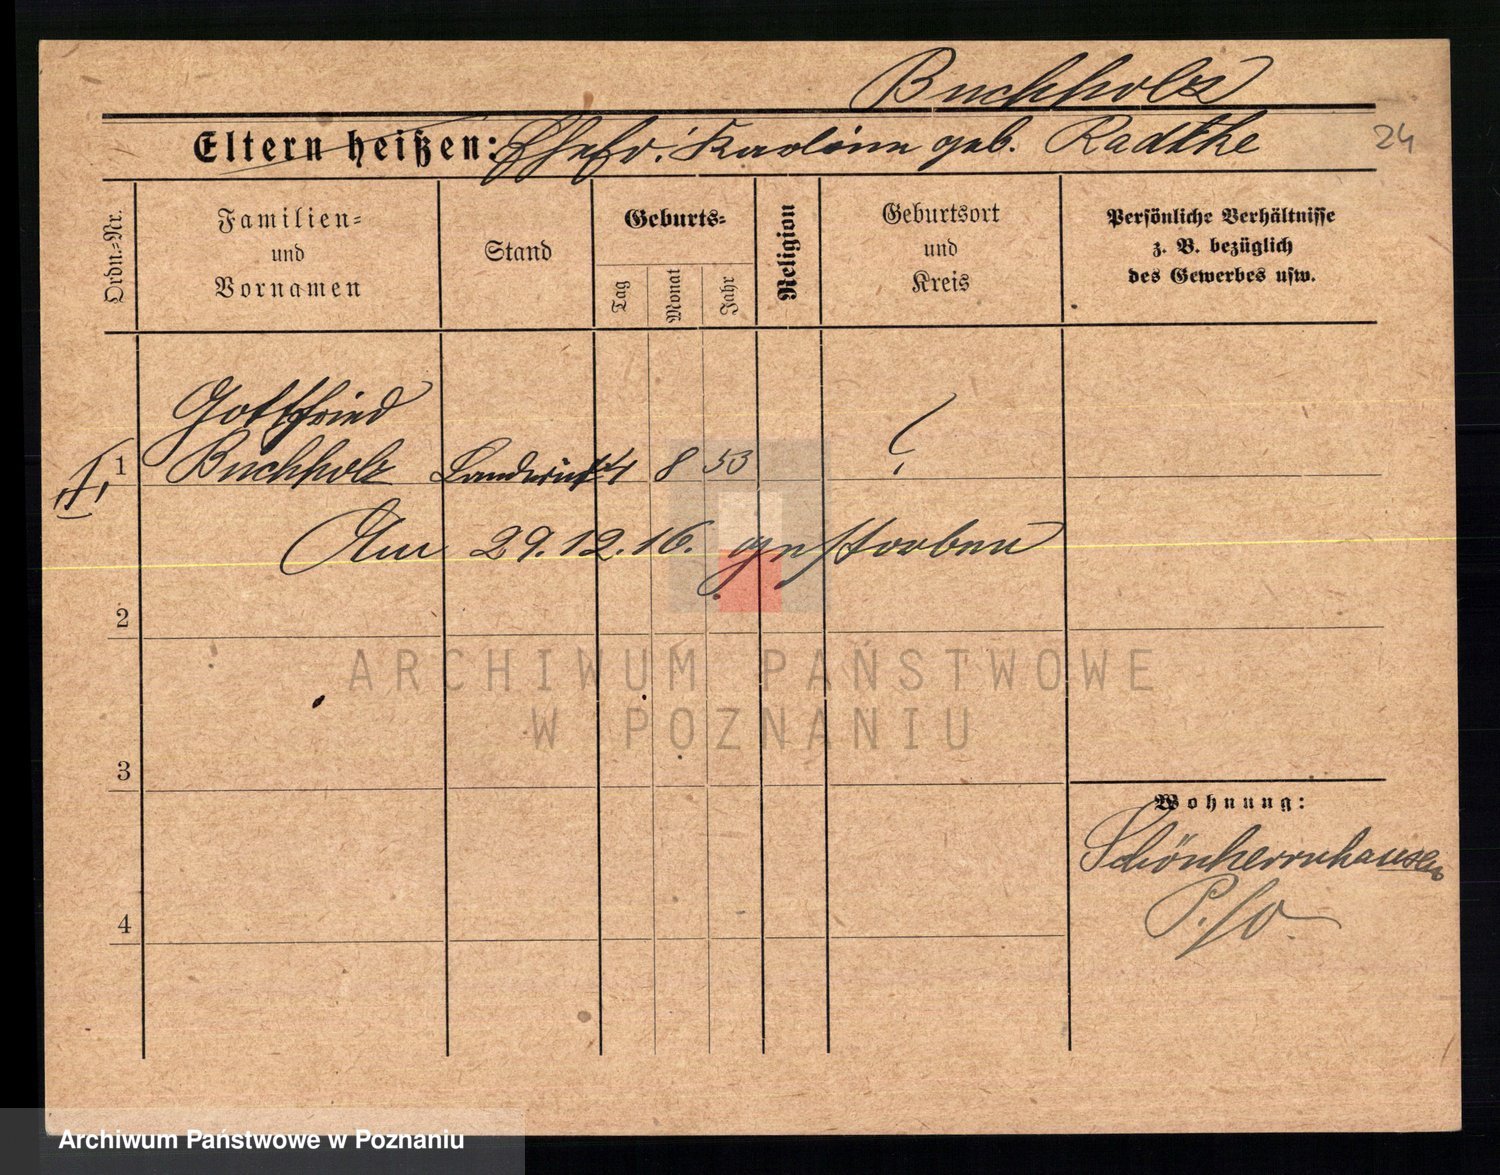 Buchholz
Eltern heißen: Ehefr. Karoline geb. Radthe
24
Ordn.-Nr.
Familien-
und
Vornamen
Stand
Geburts-
Tag
Monat
Jahr
Religion
Geburtsort
und
Kreis
Persönliche Verhältnisse
z. B. bezüglich
des Gewerbes usw.
1
Gottfried
Buchholz
Landwirt
8
53
?
Am 29.12.16. gestorben
2
3
4
Wohnung:
Schönherrnhausen
ARCHIWUM PAŃSTWOWE
W POZNANIU
Archiwum Państwowe w Poznaniu